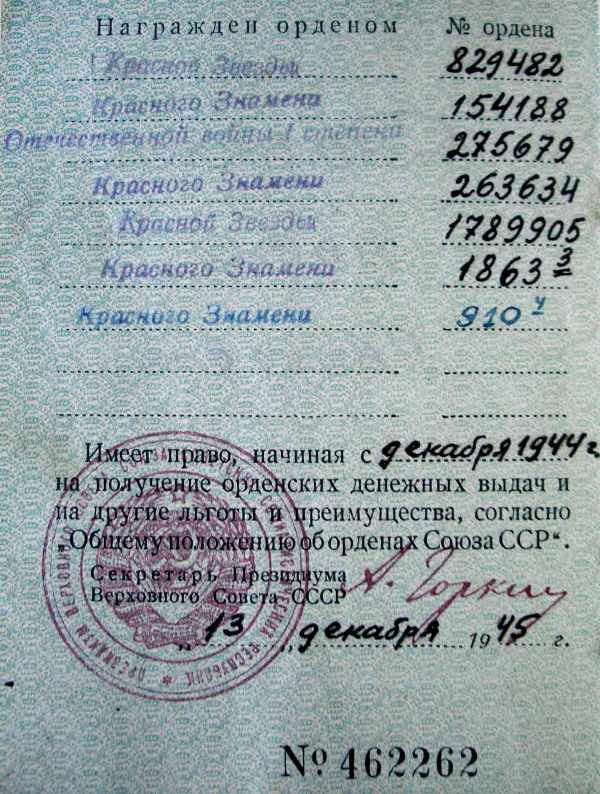 Награжден орденом № ордена
Красной Звезды 829482
Красного Знамени 154188
Отечественной войны I степени 275679
Красного Знамени 263634
Красной Звезды 1789905
Красного Знамени 1863 3
Красного Знамени 910 4
Имеет право, начиная с декабря 1944 г.
на получение орденских денежных выдач и
на другие льготы и преимущества, согласно
"Общему положению об орденах Союза ССР".
Секретарь Президиума
Верховного Совета СССР А. Горкин
"13" декабря 1945 г.
№ 462262